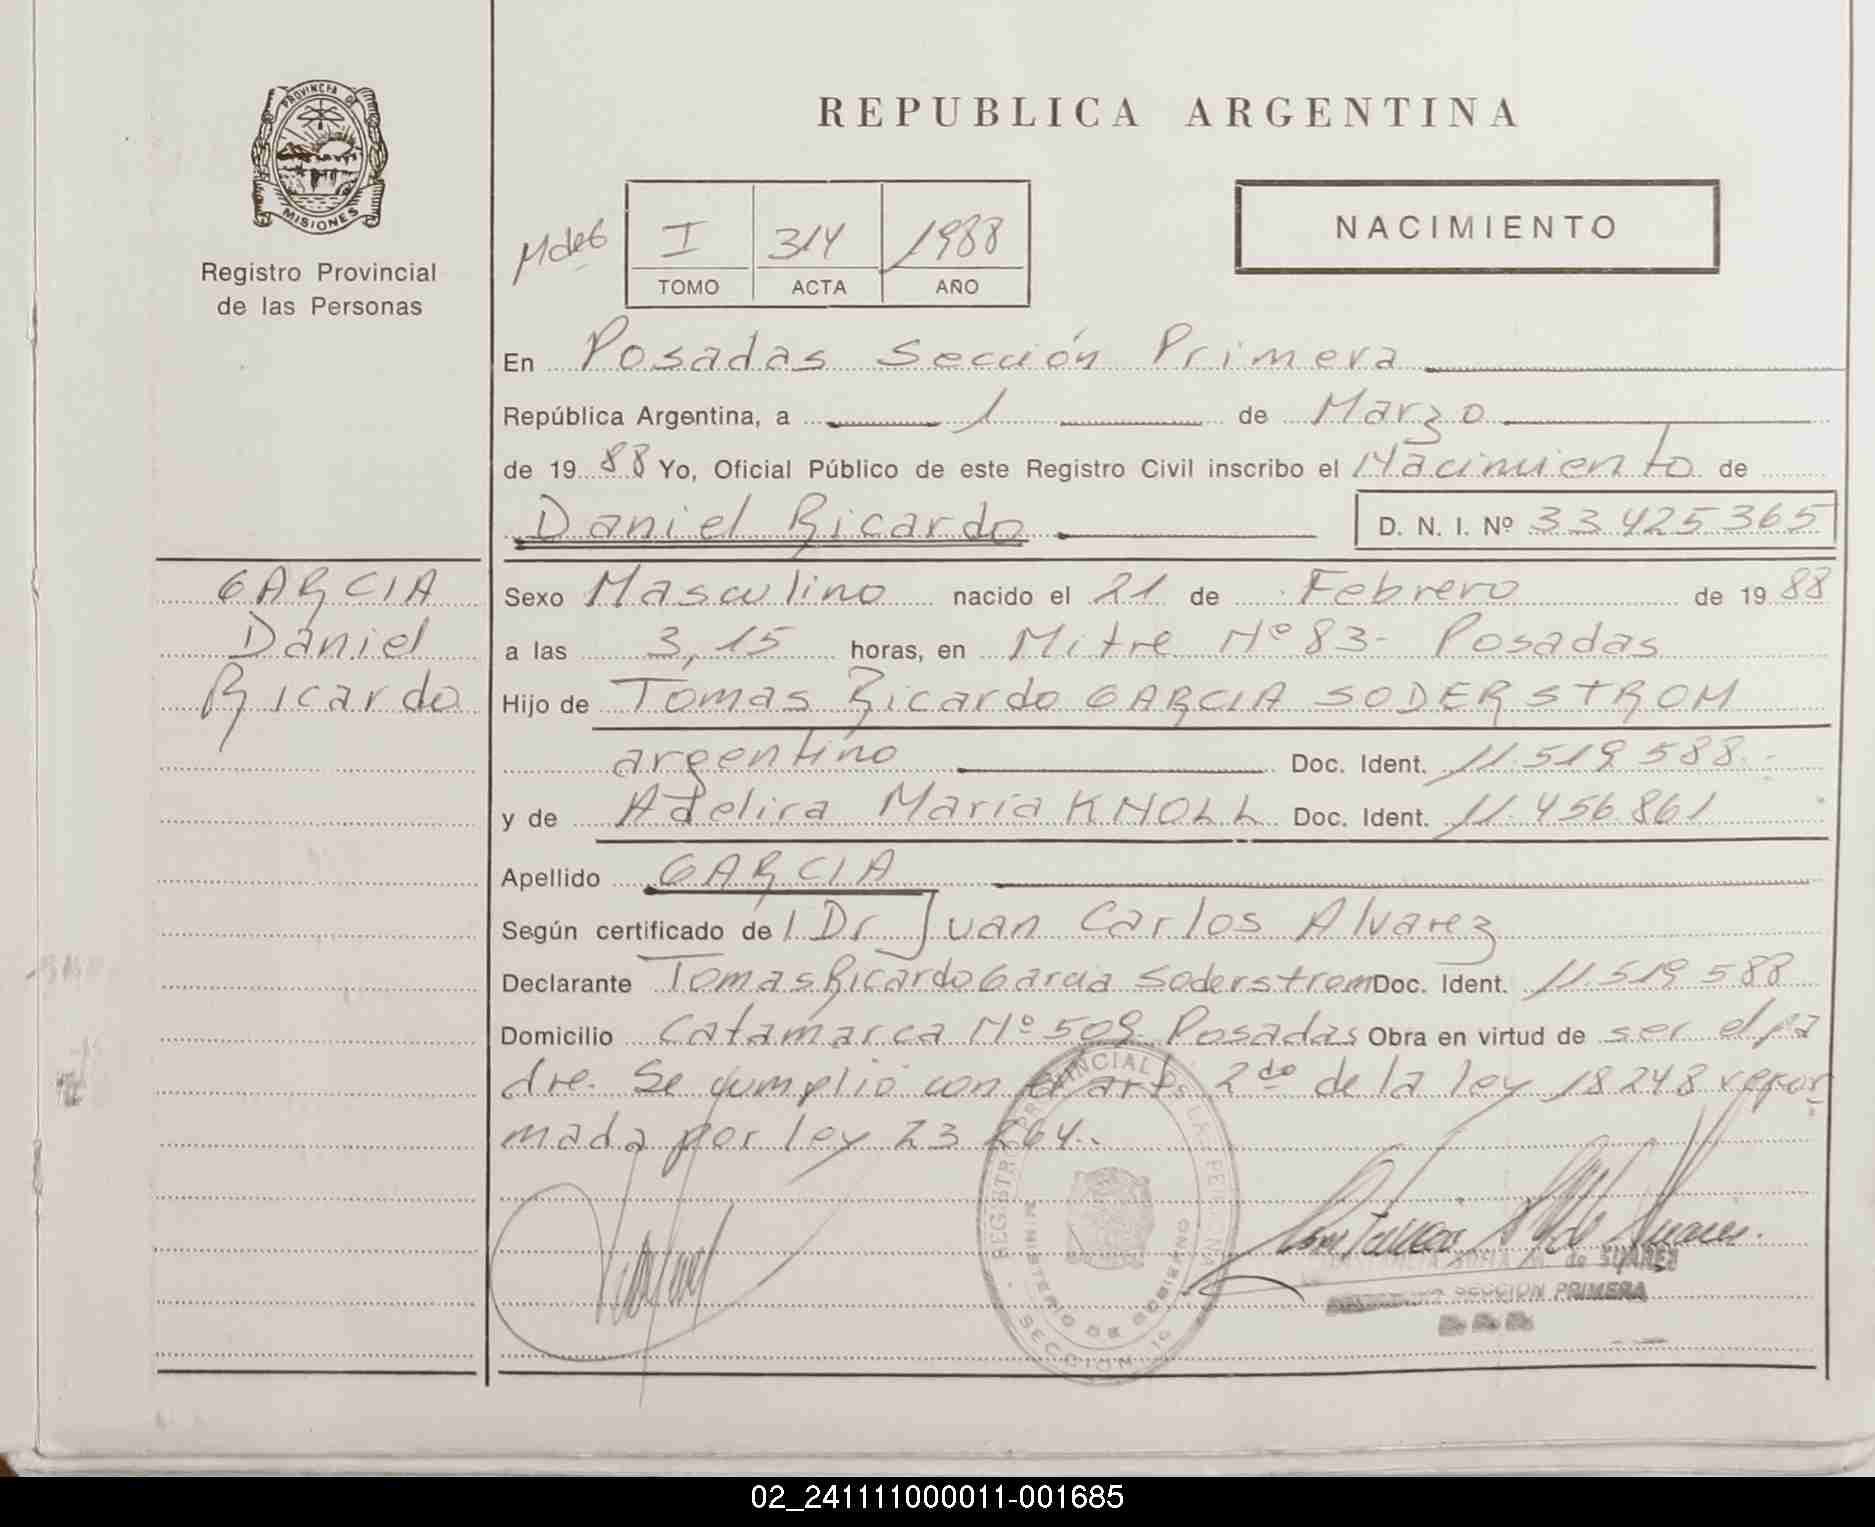 REPUBLICA ARGENTINA
PROVINCIA DE
MISIONES
Registro Provincial
de las Personas
I 314 1988
TOMO ACTA AÑO
NACIMIENTO
En Posadas Sección Primera
República Argentina, a 1 de Marzo
de 1988 Yo, Oficial Público de este Registro Civil inscribo el Nacimiento de
Daniel Ricardo D. N. I. Nº 33 425 365
GARCIA
Daniel
Ricardo
Sexo Masculino nacido el 21 de Febrero de 1988
a las 3,15 horas, en Mitre Nº 83- Posadas
Hijo de Tomas Ricardo GARCIA SODERSTROM
argentino Doc. Ident. 11.519.588.-
y de Adelira Maria KNOLL Doc. Ident. 11.456.861
Apellido GARCIA
Según certificado de l Dr Juan Carlos Alvarez
Declarante Tomas Ricardo Garcia Soderstrom Doc. Ident. 11.519 588
Domicilio Catamarca Nº 509 Posadas Obra en virtud de ser el pa
dre. Se cumplio con el art 2do de la ley 18248 refor
mada por ley 23 264.
REGISTRO PROVINCIAL DE LAS PERSONAS
MINISTERIO DE GOBIERNO
SECCION 1º
de SUAREZ
SECCION PRIMERA
02_241111000011-001685